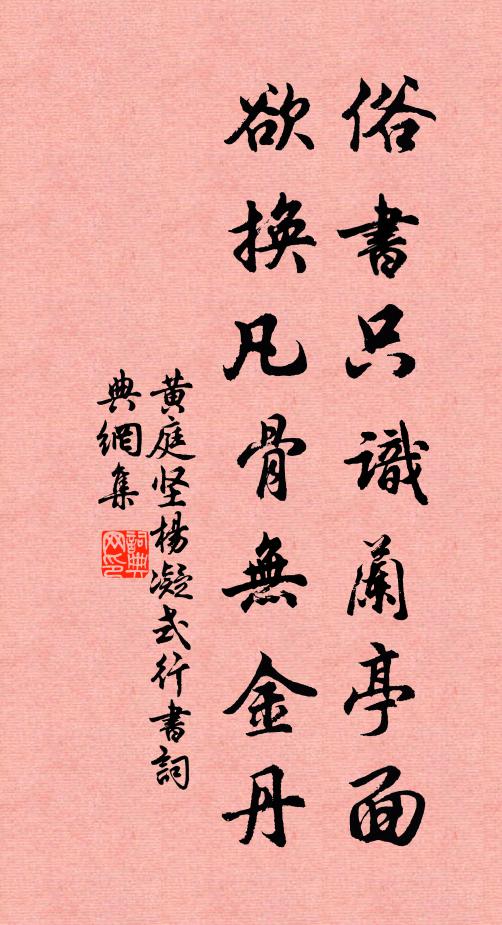 俗書只識蘭亭面
欲換凡骨無金丹
黄庭坚楊凝式行書詞
典網集
詞典
网印